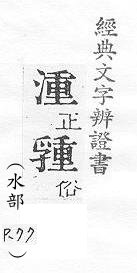 經典文字辨證書
湩正
俗
(水部
P.77)